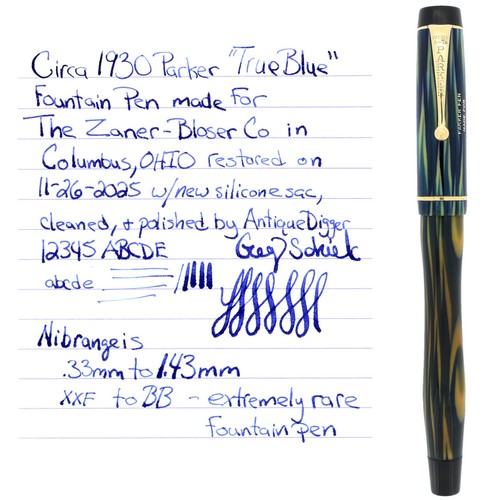 Circa 1930 Parker "True Blue"
Fountain Pen made for
The Zaner-Bloser Co in
Columbus, OHIO restored on
11-26-2025 w/new silicone sac,
cleaned, & polished by AntiqueDigger
12345 ABCDE
abcde
Nib range is
.33mm to 1.43mm
XXF to BB - extremely rare
fountain pen
PARKER
PARKER PEN
MADE FOR